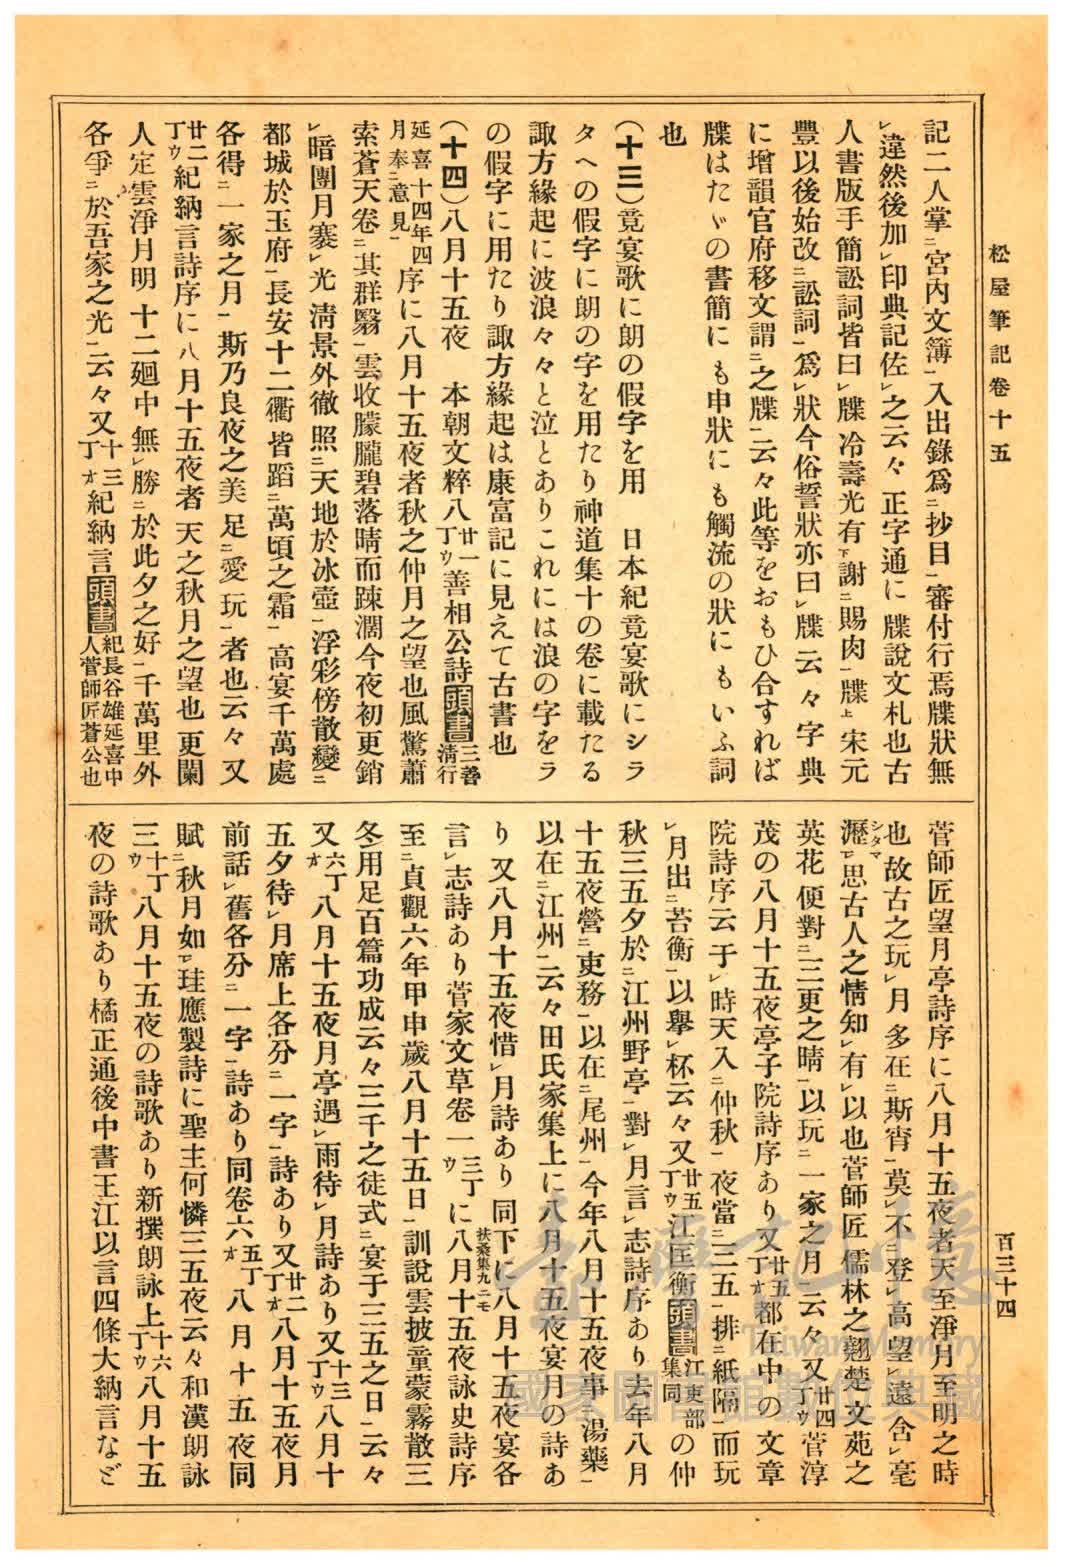 松屋筆記卷十五
百三十四
記二人掌ニ宮內文簿一入出錄爲ニ抄目一審付行焉牒狀無
レ違然後加レ印典記佐レ之云々 正字通に 牒說文札也古
人書版手簡訟詞皆曰レ牒 冷壽光有下謝ニ賜肉一牒上 宋元
豐以後始改ニ訟詞一爲レ狀今俗誓狀亦曰レ牒 云々 字典
に增韻官府移文謂ニ之牒一云々此等をおもひ合すれば
牒はたゞの書簡にも申狀にも觸流の狀にもいふ詞
也
(十三)竟宴歌に朗の假字を用 日本紀竟宴歌にシラ
タヘの假字に朗の字を用たり神道集十の卷に載たる
諏方緣起に波浪々々と泣とありこれには浪の字をラ
の假字に用たり諏方緣起は康富記に見えて古書也
(十四)八月十五夜 本朝文粹八廿一丁ウ善相公詩頭書三善淸行
延喜十四年四月奉ニ意見一序に八月十五夜者秋之仲月之望也風驚蕭
索蒼天卷ニ其群翳一雲收朦朧碧落晴而踈濶今夜初更銷
レ暗團月褰レ光 淸景外徹 照ニ天地於冰壺一浮彩傍散變ニ
都城於玉府一長安十二衢 皆蹈ニ萬頃之霜一高宴千萬處
各得ニ一家之月一斯乃良夜之美 足ニ愛玩一者也云々 又
廿二丁ウ紀納言詩序に 八月十五夜者 天之秋月之望也 更闌
人定雲淨月明 十二廻中 無レ勝ニ於此夕之好一千萬里外
各爭ニ於吾家之光一云々 又十三丁オ紀納言頭書紀長谷雄延喜中人菅師匠蒼公也
菅師匠望月亭詩序に八月十五夜者天至淨月至明之時
也故古之玩レ月 多在ニ斯宵一莫レ不ニ登レ高望レ遠 含レ毫
瀝シタマレ思古人之情知レ有レ以也菅師匠 儒林之翹楚文苑之
英花 便對ニ三更之晴一以玩ニ一家之月一云々 又廿四丁ウ菅淳
茂の八月十五夜亭子院詩序あり又廿五丁オ都在中の文章
院詩序云于レ時天入ニ仲秋一夜當ニ三五一排ニ紙隔一而玩
レ月出ニ苔衡一以擧レ杯云々又廿五丁ウ江匡衡頭書江吏部集同の仲
秋三五夕於ニ江州野亭一對レ月言レ志詩序あり去年八月
十五夜營ニ吏務一以在ニ尾州一今年八月十五夜事ニ湯藥一
以在ニ江州一云々田氏家集上に八月十五夜宴月の詩あ
り又八月十五夜惜レ月詩あり同下に八月十五夜宴各
言レ志詩あり菅家文草卷一三丁ウ扶桑集九ニモに八月十五夜詠史詩序
至ニ貞觀六年甲申歲八月十五日一訓說雲披童蒙霧散三
冬用足百篇功成云々三千之徒式ニ宴于三五之日一云々
又六丁オ八月十五夜月亭遇レ雨待レ月詩あり又十三丁ウ八月十
五夕待レ月席上各分ニ一字一詩あり又廿二丁オ八月十五夜月
前話レ舊各分ニ一字一詩あり同卷六五丁オ八月十五夜同
賦ニ秋月如レ珪應製詩に聖主何憐三五夜云々和漢朗詠
三十丁ウ八月十五夜の詩歌あり新撰朗詠上十六丁ウ八月十五
夜の詩歌あり橘正通後中書王江以言四條大納言など
臺灣記憶
Taiwan Memory
國家圖書館數位典藏